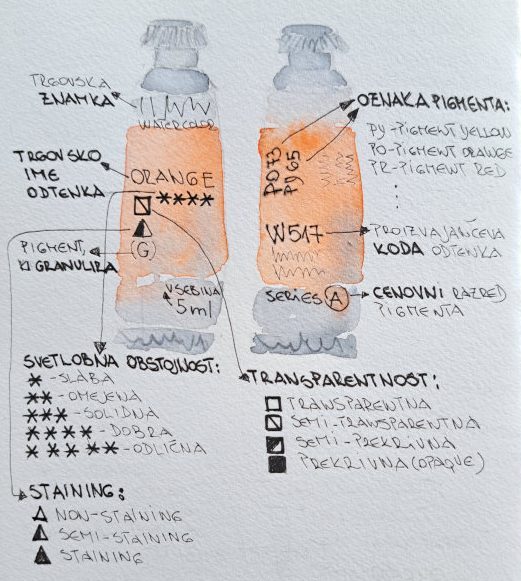 TRGOVSKA
ZNAMKA
WATERCOLOR
TRGOVSKO
IME
ODTENKA
ORANGE
****
PIGMENT,
KI GRANULIRA
(G)
VSEBINA
5 ml
PO73
PY65
W517
SERIES A
OZNAKA PIGMENTA:
PY-PIGMENT YELLOW
PO-PIGMENT ORANGE
PR-PIGMENT RED
PROIZVAJALČEVA
KODA ODTENKA
CENOVNI RAZRED
PIGMENTA
SVETLOBNA OBSTOJNOST:
* -SLABA
** -OMEJENA
*** -SOLIDNA
**** -DOBRA
***** -ODLIČNA
TRANSPARENTNOST:
TRANSPARENTNA
SEMI-TRANSPARENTNA
SEMI-PREKRIVNA
PREKRIVNA (OPAQUE)
STAINING:
NON-STAINING
SEMI-STAINING
STAINING